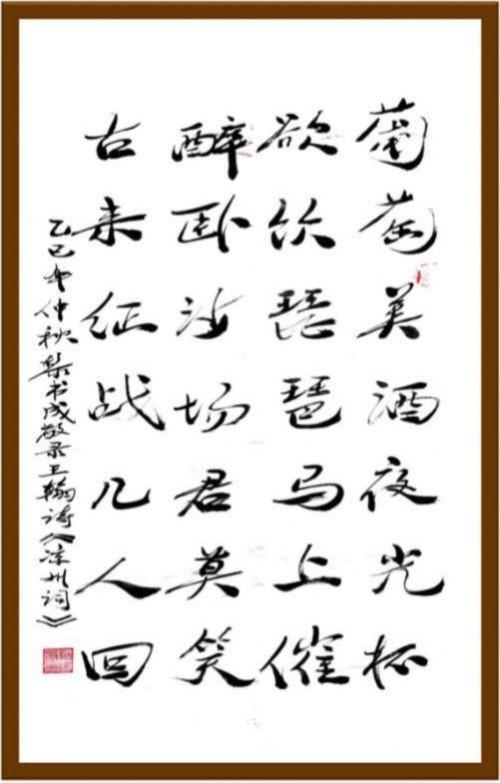 葡萄美酒夜光杯
欲饮琵琶马上催
醉卧沙场君莫笑
古来征战几人回
乙巳年仲秋集书成敬录王翰诗《凉州词》